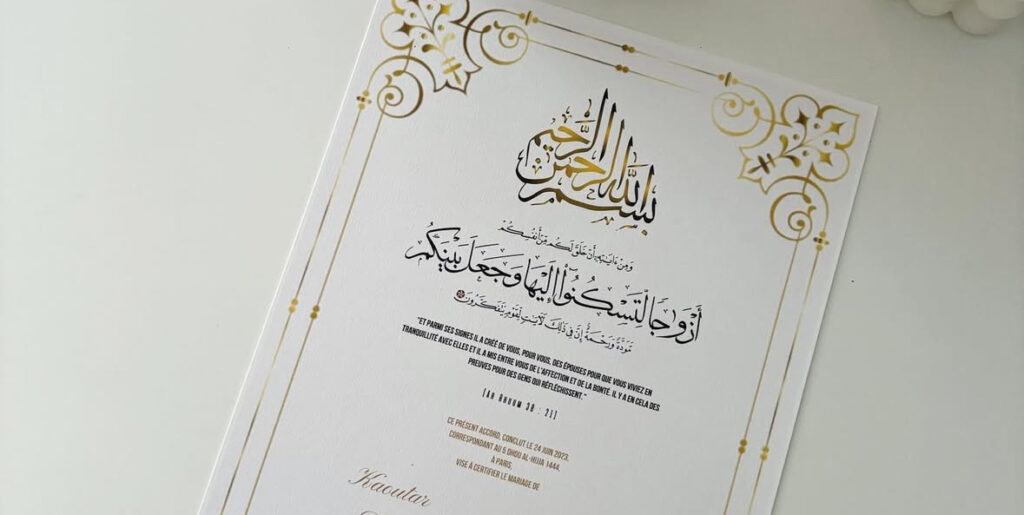 بسم الله الرحمن الرحيم
وَمِنْ ءَايَٰتِهِۦٓ أَنْ خَلَقَ لَكُم مِّنْ أَنفُسِكُمْ
أَزْوَٰجًا لِّتَسْكُنُوٓا۟ إِلَيْهَا وَجَعَلَ بَيْنَكُم
مَّوَدَّةً وَرَحْمَةً إِنَّ فِى ذَٰلِكَ لَءَايَٰتٍ لِّقَوْمٍ يَتَفَكَّرُونَ
"ET PARMI SES SIGNES IL A CRÉÉ DE VOUS, POUR VOUS, DES ÉPOUSES POUR QUE VOUS VIVIEZ EN
TRANQUILLITÉ AVEC ELLES ET IL A MIS ENTRE VOUS DE L'AFFECTION ET DE LA BONTÉ. IL Y A EN CELA DES
PREUVES POUR DES GENS QUI RÉFLÉCHISSENT."
[Ar Rhuum 30 : 21]
CE PRÉSENT ACCORD, CONCLUT LE 24 JUIN 2023,
CORRESPONDANT AU 6 DHOU AL-HIJA 1444,
À PARIS,
VISE À CERTIFIER LE MARIAGE DE
Kaoutar